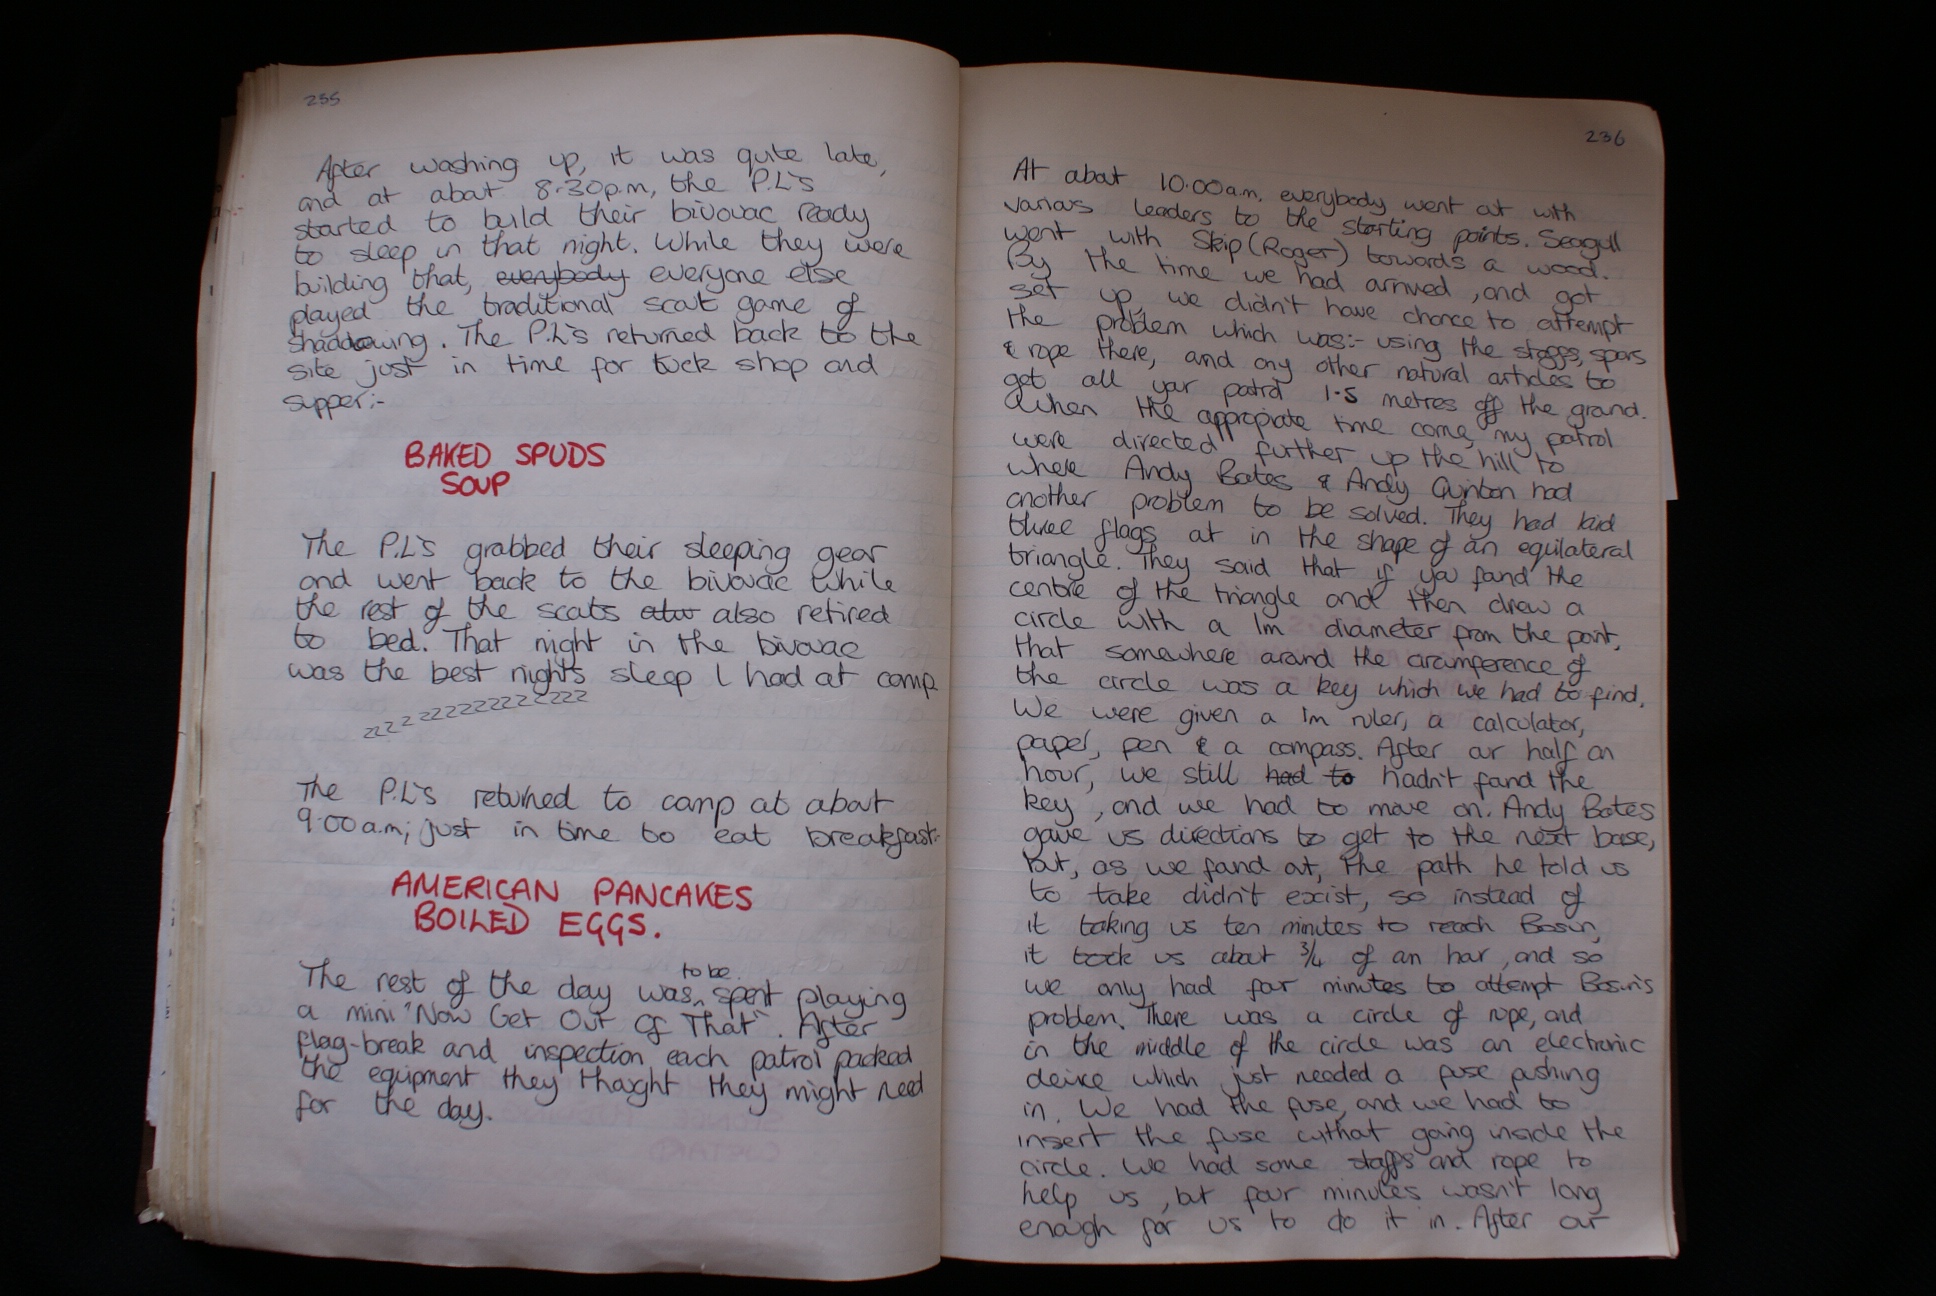 235
After washing up, it was quite late,
and at about 8.30p.m, the P.L's
started to build their bivouac ready
to sleep in that night. While they were
building that, everybody everyone else
played the traditional scout game of
shaddowing. The P.L's returned back to the
site just in time for tuck shop and
supper:-
BAKED SPUDS
SOUP
The P.L's grabbed their sleeping gear
and went back to the bivouac while
the rest of the scouts also retired
to bed. That night in the bivouac
was the best nights sleep I had at camp
zzzzzzzzzzzzzzzz
The P.L's returned to camp at about
9.00a.m; just in time to eat breakfast:-
AMERICAN PANCAKES
BOILED EGGS.
to be
The rest of the day was spent playing
a mini "Now Get Out Of That". After
flag-break and inspection each patrol packed
the equipment they thought they might need
for the day.
236
At about 10.00a.m. everybody went out with
various leaders to the starting points. Seagull
went with Skip (Roger) towards a wood.
By the time we had arrived, and got
set up, we didn't have chance to attempt
the problem which was:- using the staffs, spars
& rope there, and any other natural articles to
get all your patrol 1.5 metres off the ground.
When the appropiate time came, my patrol
were directed further up the hill to
where Andy Bates & Andy Quinton had
another problem to be solved. They had laid
three flags out in the shape of an equilateral
triangle. They said that if you found the
centre of the triangle and then drew a
circle with a 1m diameter from the point,
that somewhere around the circumference of
the circle was a key which we had to find.
We were given a 1m ruler, a calculator,
paper, pen & a compass. After our half an
hour, we still had to hadn't found the
key, and we had to move on. Andy Bates
gave us directions to get to the next base,
but, as we found out, the path he told us
to take didn't excist, so instead of
it taking us ten minutes to reach Bosun,
it took us about 3/4 of an hour, and so
we only had four minutes to attempt Bosun's
problem. There was a circle of rope, and
in the middle of the circle was an electronic
deivce which just needed a fuse pushing
in. We had the fuse, and we had to
insert the fuse without going inside the
circle. We had some staffs and rope to
help us, but four minutes wasn't long
enough for us to do it in. After our